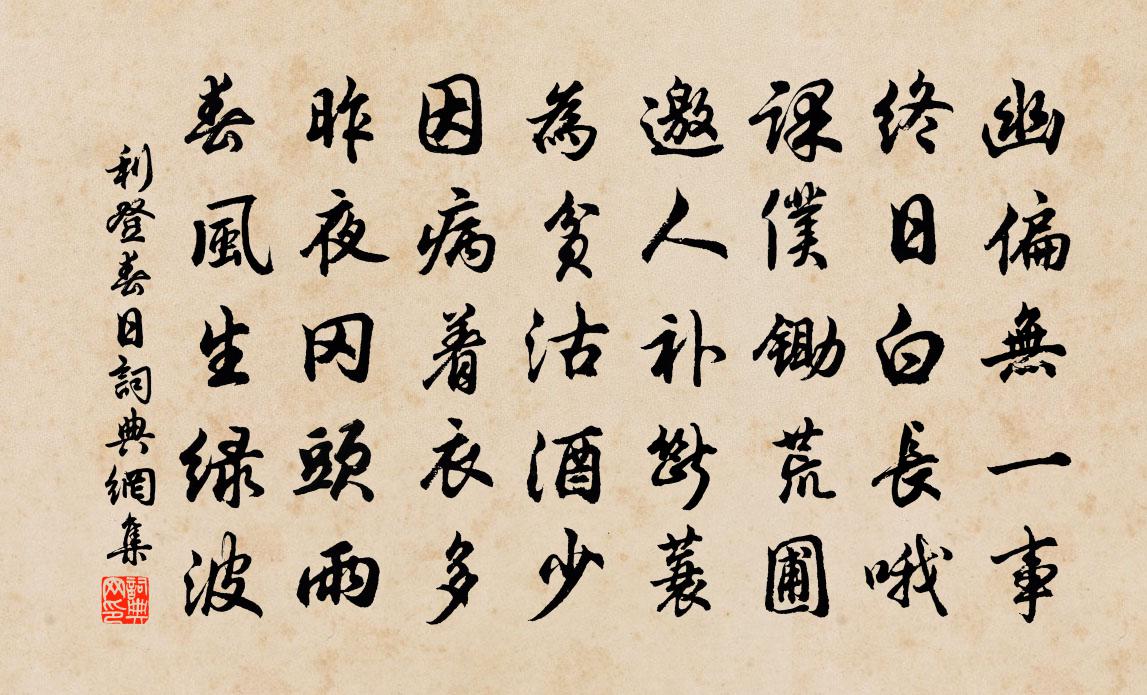 幽偏無一事
終日白長哦
課僕鋤荒圃
邀人补斷蓑
為貧沽酒少
因病着衣多
昨夜冈頭雨
春風生緑波
利登春日詞典網集
詞典网印